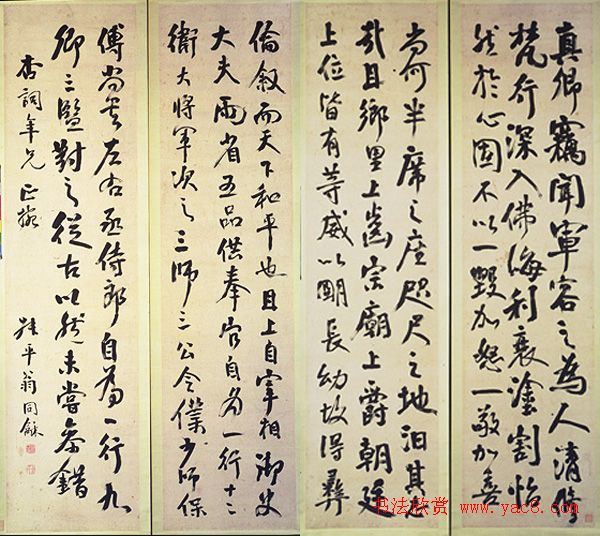 真卿竊聞軍容之為人清修
梵行深入佛海利衰塗割恬
然於心固不以一毀加怒一敬加喜
尚何半席之座咫尺之地汩其志
哉且鄉里上齒宗廟上爵朝廷
上位皆有等威以明長幼故得彝
倫敘而天下和平也且上自宰相御史
大夫兩省五品供奉官自為一行十二
衛大將軍次之三師三公令僕少師保
傅尚書左右丞侍郎自為一行九
卿三監對之從古以然未嘗參錯
杏詞年兄正
叔平翁同龢
书法欣赏
www.yac8.com